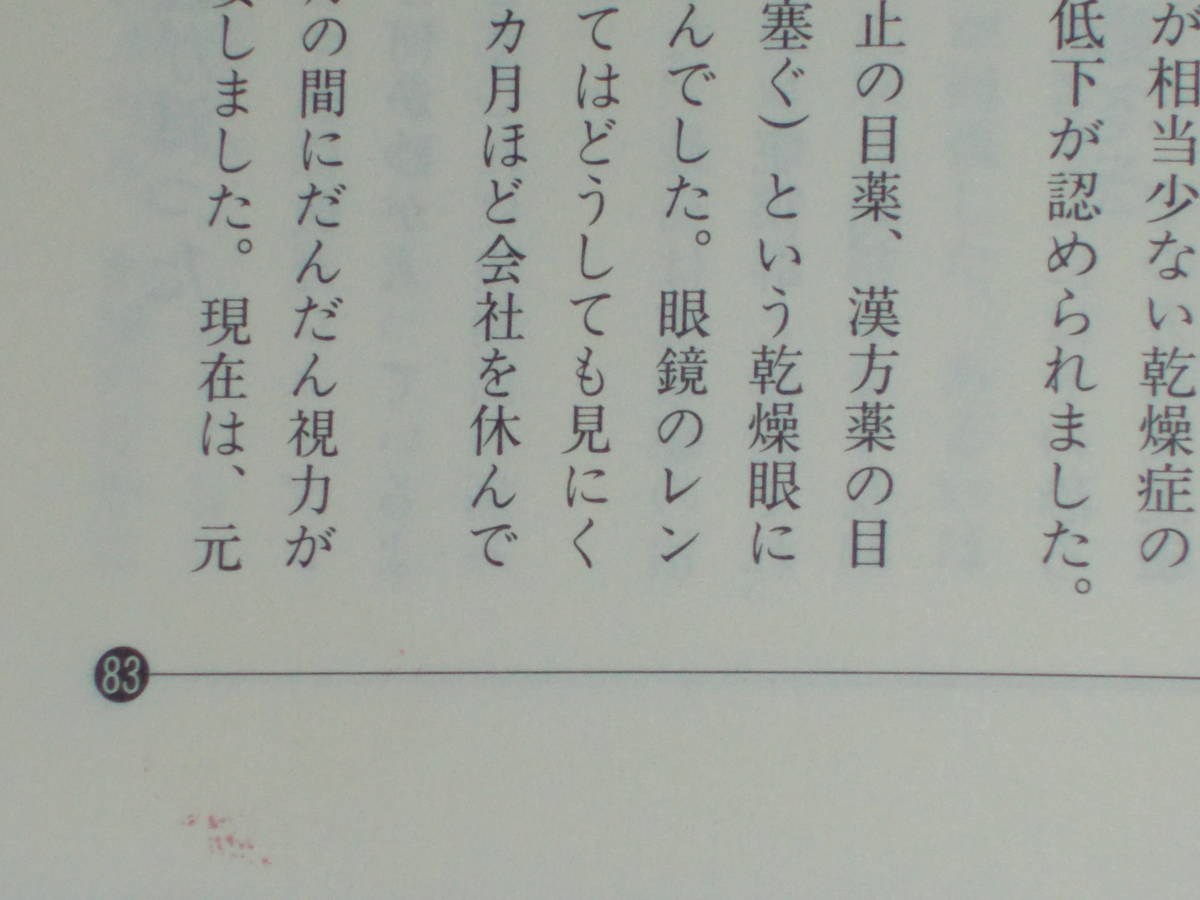 が相当少ない乾燥症の
低下が認められました。
止の目薬、漢方薬の目
塞ぐ)という乾燥眼に
んでした。眼鏡のレン
てはどうしても見にく
カ月ほど会社を休んで
の間にだんだん視力が
しました。現在は、元
83